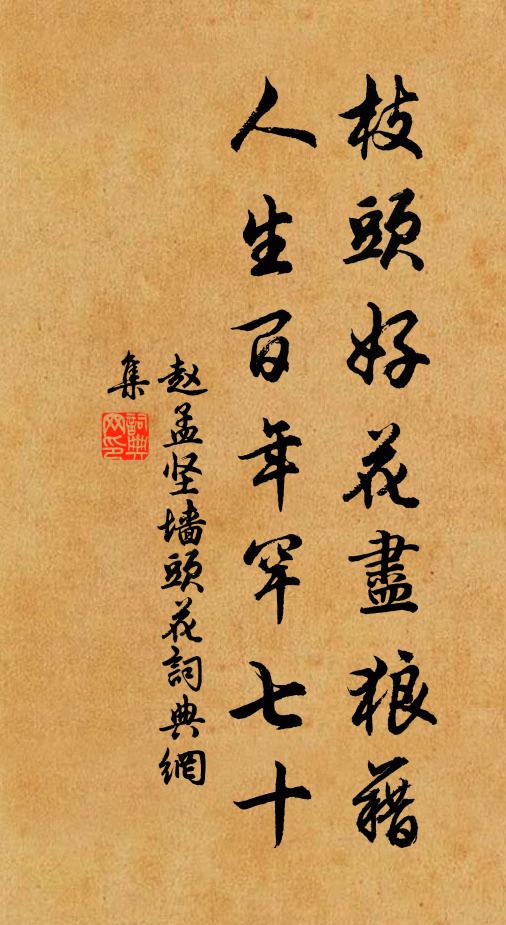 枝頭好花盡狼藉
人生百年罕七十
赵孟坚墙頭花詞典網
集
詞典网印